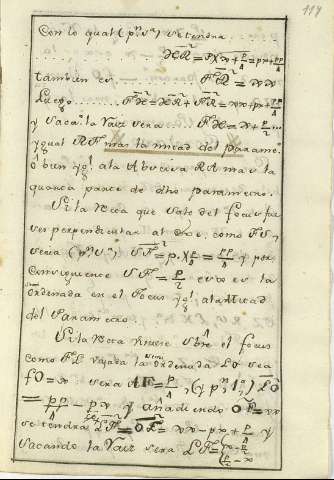 114
Con lo qual (pr. sa.) se tendra
HR² = PXx + p/4 = px + pp/4
tambien es FR² = xx
Luego FH² = HR² + FR² = xx + px + pp/4
y Sacada la Raiz sera FH = x + p/2 =
ygual RF mas la mitad del parame.
o bien yg.l a la Abscisa RA mas la
quarta parte de dho parametro.
Si la recta que sale del focus fue
ren perpendicular al Exe, como FS,
sera SF² = p × p/4 = pp/4 y por
Consiguiente SF = p/2 esto es la
Ordenada en el Focus yg.l a la Mitad
del Parametro
Si la recta viniere sobre el focus
como FL vajada la Ordenada LO sea
FO = x sera AF = p/4, LO²
= pp/4 - px y añadiendo OF² = xx
se tendra LF² = xx - px + pp/4 y
Sacando la Raiz sera LF =